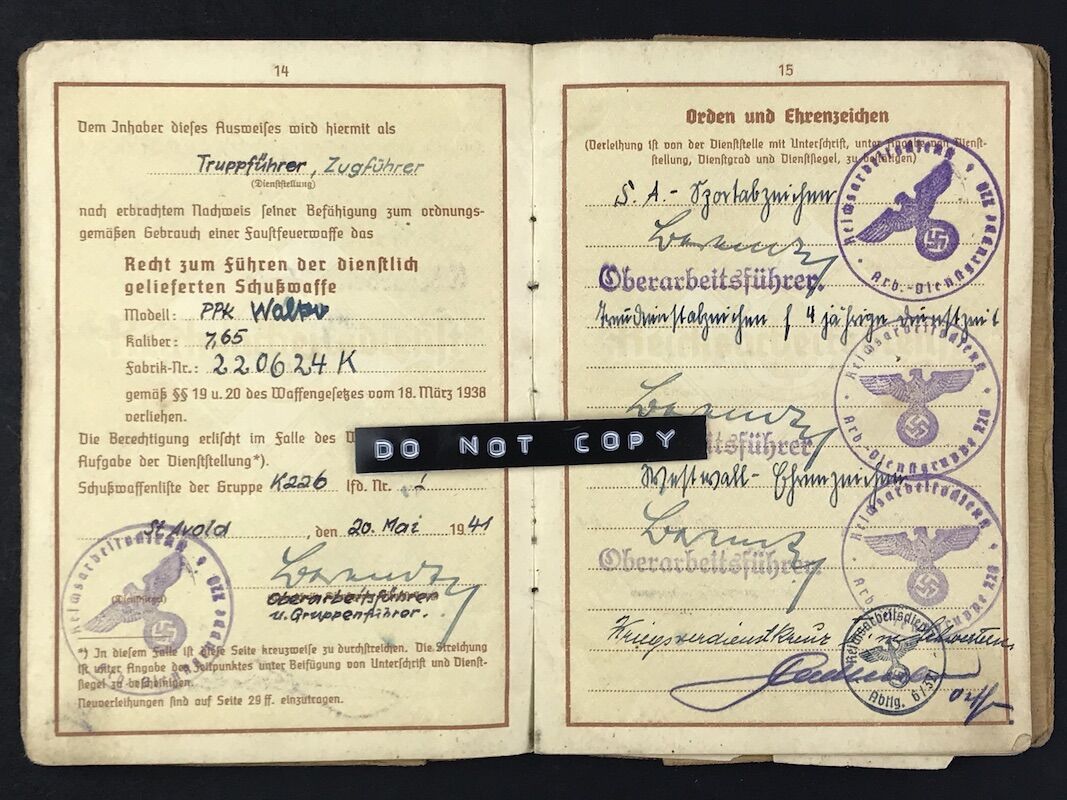 14
Dem Inhaber dieses Ausweises wird hiermit als
Truppführer, Zugführer
(Dienststellung)
nach erbrachtem Nachweis seiner Befähigung zum ordnungs-
gemäßen Gebrauch einer Faustfeuerwaffe das
Recht zum Führen der dienstlich
gelieferten Schußwaffe
Modell: PPK Walter
Kaliber: 7,65
Fabrik-Nr.: 220624 K
gemäß §§ 19 u. 20 des Waffengesetzes vom 18. März 1938
verliehen.
Die Berechtigung erlischt im Falle des
Aufgabe der Dienststellung*).
Schußwaffenliste der Gruppe K226 lfd. Nr.
St Avold, den 20. Mai 1941
Oberarbeitsführer
u. Gruppenführer.
(Dienstsiegel)
Reichsarbeitsdienst
*) In diesem Falle ist diese Seite kreuzweise zu durchstreichen. Die Streichung
ist unter Angabe des Zeitpunktes unter Beifügung von Unterschrift und Dienst-
siegel zu bescheinigen.
Neuverleihungen sind auf Seite 29 ff. einzutragen.
DO NOT COPY
15
Orden und Ehrenzeichen
(Verleihung ist von der Dienststelle mit Unterschrift, unter Angabe von Dienst-
stellung, Dienstgrad und Dienstsiegel, zu bestätigen)
S. A. - Sportabzeichen
Reichsarbeitsdienst
Arb.-Dienstgruppe
Oberarbeitsführer.
f 4 jährige Dienstzeit
Reichsarbeitsdienst
Arb.-Dienstgruppe
itsführer
Westwall- Ehrenzeichen
Reichsarbeitsdienst
Oberarbeitsführer.
Kriegsverdienstkreuz m. Schwertern
Reichsarbeitsdienst
Abtlg.